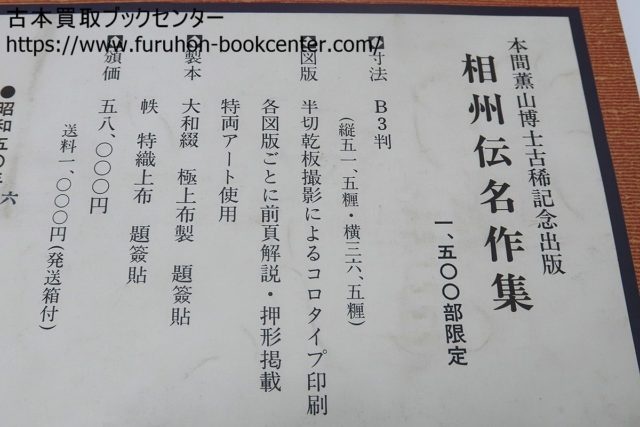 古本買取ブックセンター
https://www.furuhon-bookcenter.com/
本間薫山博士古稀記念出版
相州伝名作集
一、五〇〇部限定
【寸法】 B3判
(縦五一、五糎・横三六、五糎)
【図版】 半切乾板撮影によるコロタイプ印刷
各図版ごとに前頁解説・押形掲載
特両アート使用
【製本】 大和綴 極上布製 題簽貼
帙 特織上布 題簽貼
【頒価】 五八、〇〇〇円
送料一、〇〇〇円(発送箱付)
●昭和五〇年六